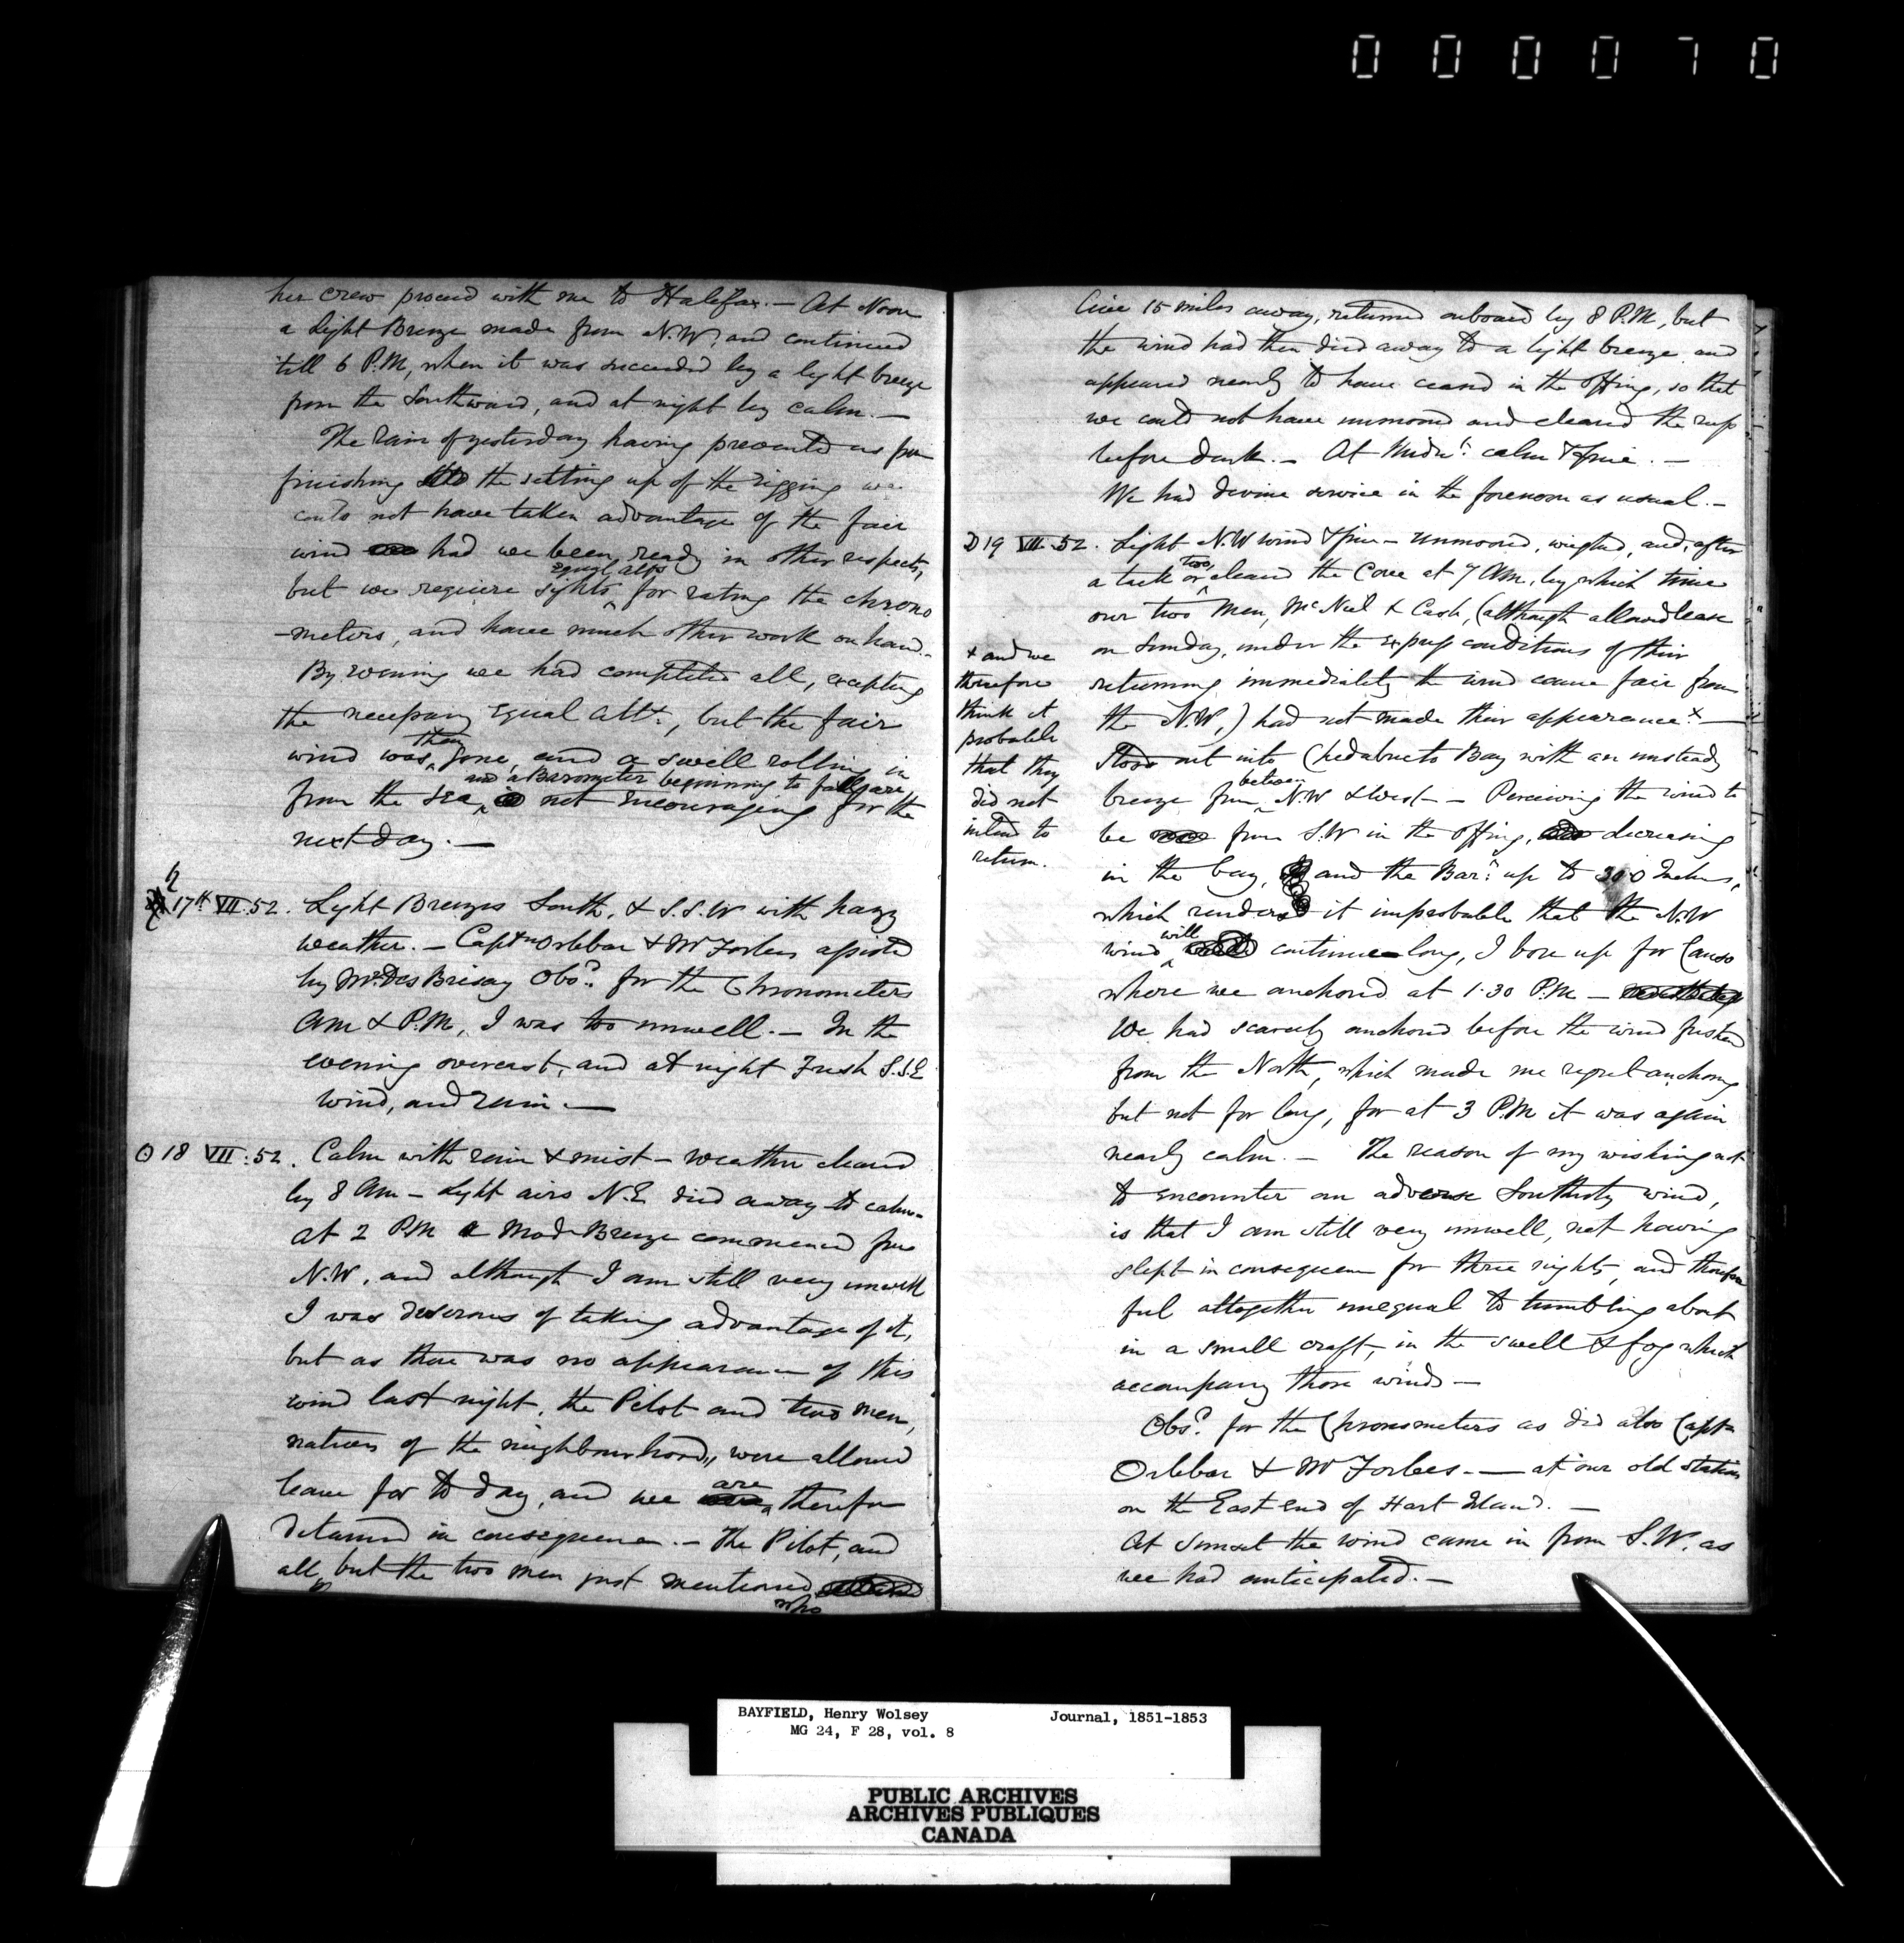 0 0 0 0 7 0
her crew proceed with me to Halifax. — At Noon
a light Breeze made from N.W, and continued
till 6 P.M, when it was succeeded by a light breeze
from the Southward, and at night by calm. —
The rain of yesterday having prevented us from
finishing the setting up of the rigging we
could not have taken advantage of the fair
wind had we been ready in other respects,
but we require sights equal alts for rating the chrono
-meters, and have much other work on hand. -
By evening we had completed all, excepting
the necessary Equal Alts., but the fair
wind was then gone, and a swell rolling in
from the sea, and a Barometer beginning to fall, are not encouraging for the
next day. —
♄ 17th VII:52. Light Breezes South, & S.S.W with hazy
weather. — Captn Orlebar & Mr Forbes assisted
by Mr. Des Brisay Obsd. for the Chronometers
AM & P.M, I was too unwell. — In the
evening overcast, and at night Fresh S.S.E
wind, and rain. —
☉ 18 VII:52. Calm with rain & mist — weather cleared
by 8 AM — Light airs N.E died away to calm -
at 2 P.M a Mod Breeze commenced from
N.W, and although I am still very unwell
I was desirous of taking advantage of it,
but as there was no appearance of this
wind last night, the Pilot and two men,
natives of the neighbourhood, were allowed
leave for to day, and we are therefore
detained in consequence. — The Pilot, and
all, but the two men just mentioned
who
live 15 miles away, returned onboard by 8 P.M, but
the wind had then died away to a light breeze and
appeared nearly to have ceased in the offing, so that
we could not have unmoored and cleared the reefs
before dark. — At Midnt. calm & fine. —
We had divine service in the forenoon as usual. —
☽ 19 VII:52. Light N.W wind & fine — unmoored, weighed, and, after
a tack or two, cleared the Cove at 7 AM, by which time
our two men, McNeil & Cash, (although allowed leave
on Sunday, under the express conditions of their
returning immediately the wind came fair from
the N.W,) had not made their appearance x —
x and we
therefore
think it
probable
that they
did not
intend to
return.
Stood out into Chedabucto Bay with an unsteady
breeze from between N.W & West — Perceiving the wind to
be from S.W in the offing, decreasing
in the bay, and the Barr. up to 30.0 Inches,
which renders it improbable that the N.W
wind will continue long, I bore up for Canso
where we anchored at 1.30 P.M —
We had scarcely anchored before the wind freshend
from the North, which made me regret anchoring
but not for long, for at 3 P.M it was again
nearly calm. — The reason of my wishing not
to encounter an adverse Southerly wind,
is that I am still very unwell, not having
slept in consequence for three nights, and therefore
feel altogether unequal to tumbling about
in a small craft, in the swell & fog which
accompany those winds —
Obsd. for the Chronometers as did also Captn
Orlebar & Mr Forbes. — at our old station
on the East end of Hart Island. —
At Sunset the wind came in from S.W. as
we had anticipated. —
BAYFIELD, Henry Wolsey Journal, 1851-1853
MG 24, F 28, vol. 8
PUBLIC ARCHIVES
ARCHIVES PUBLIQUES
CANADA